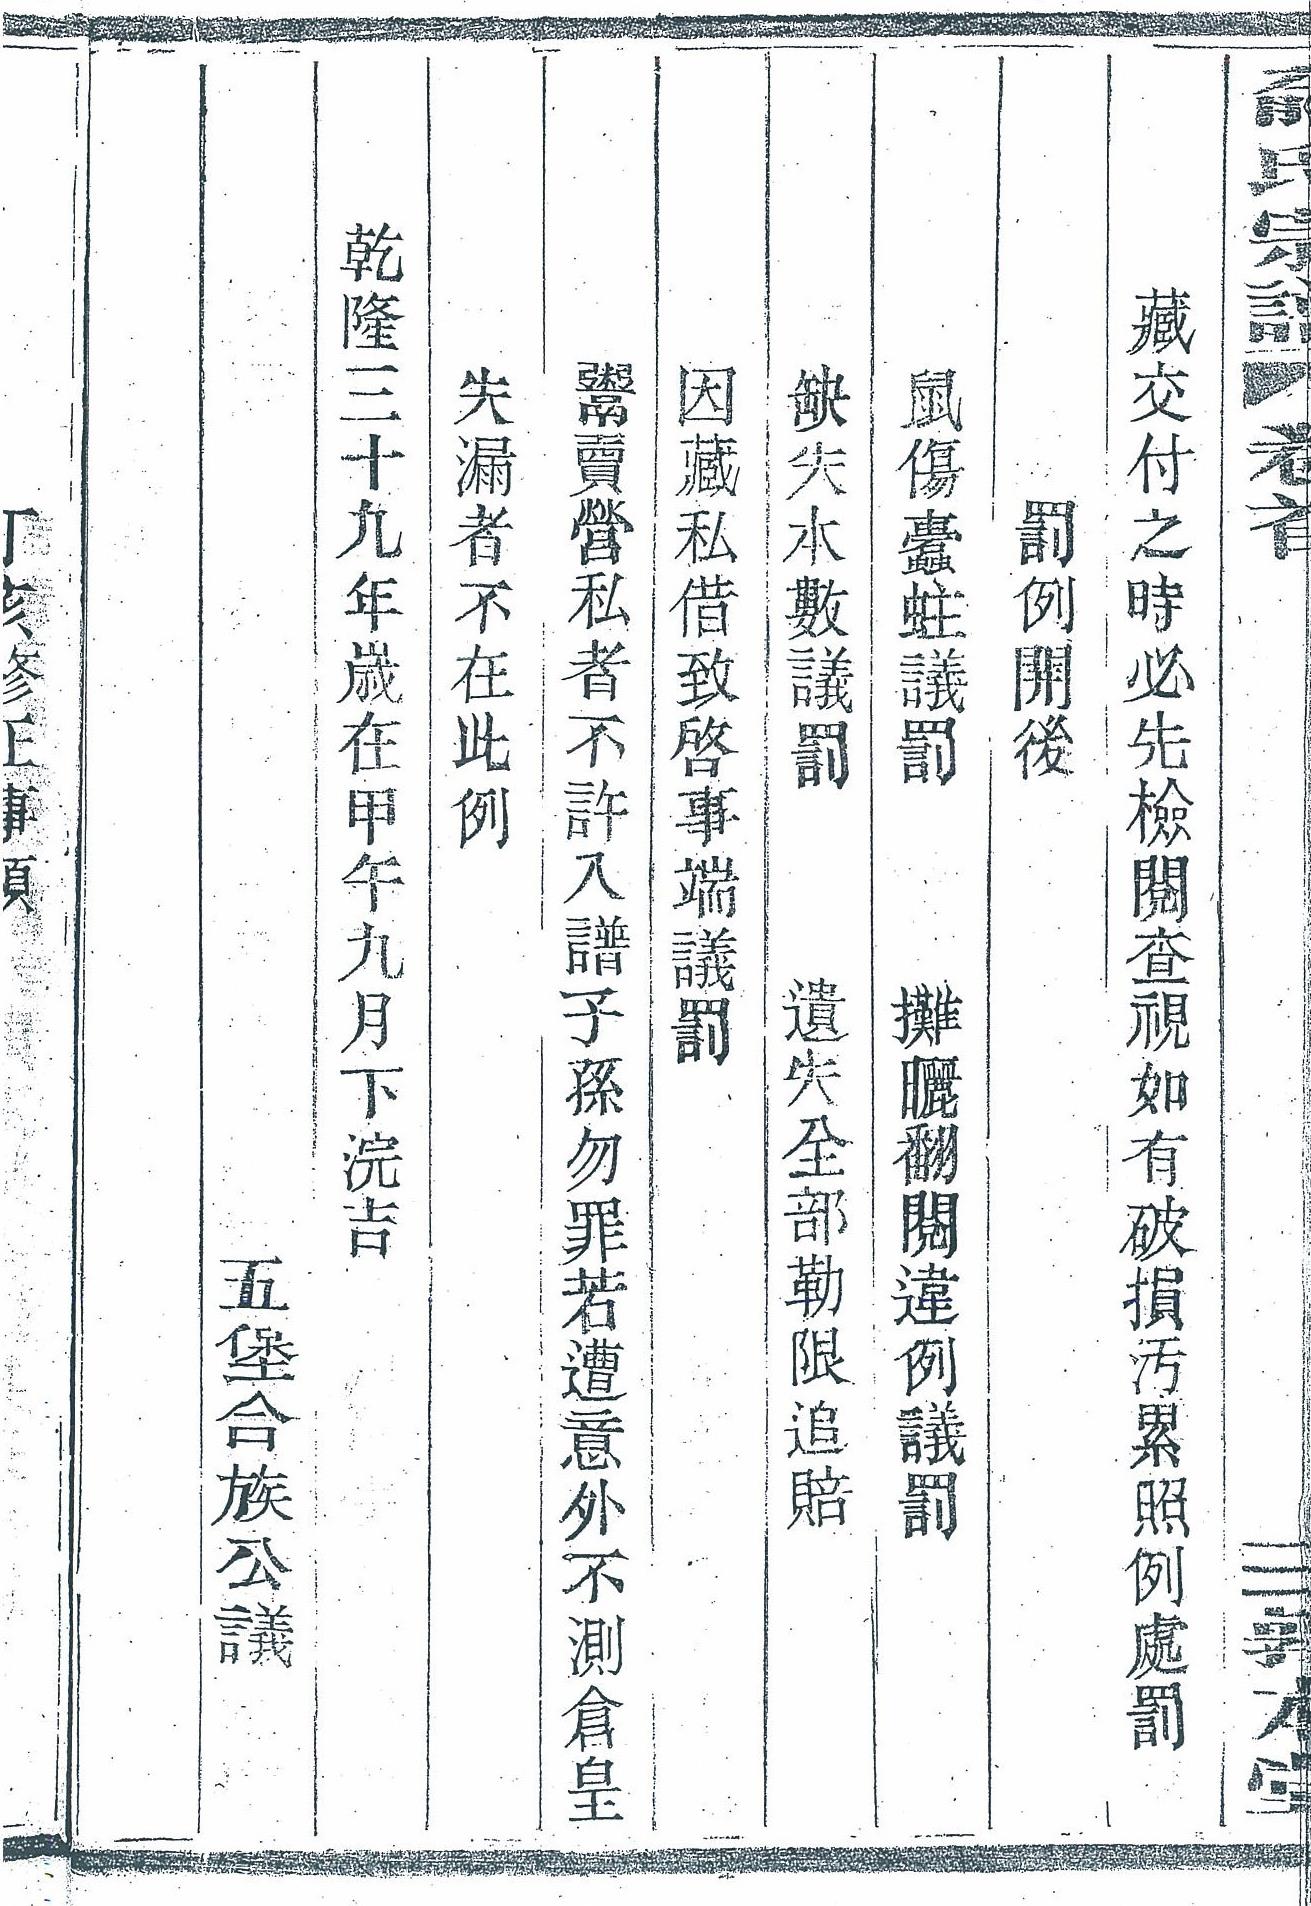 俞氏宗譜 卷首 三 敦本堂
藏交付之時必先檢閱查視如有破損污累照例處罰
罰例開後
鼠傷蠹蛀議罰 攤曬翻閱違例議罰
缺失本數議罰 遺失全部勒限追賠
因藏私借致啓事端議罰
鬻賣營私者不許入譜子孫勿罪若遭意外不測倉皇
失漏者不在此例
乾隆三十九年歲在甲午九月下浣吉
五堡合族公議
丁亥修正事項